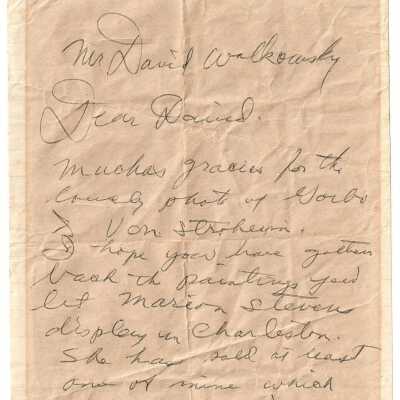 Mr David Walkowsky
Dear David.
Muchas gracias for the
lovely photo of Garbo
& Von Stroheim.
I hope you have gotten
back th paintings you'd
let Marion Stevens
display in Charleston.
She has sold at least
one of mine which